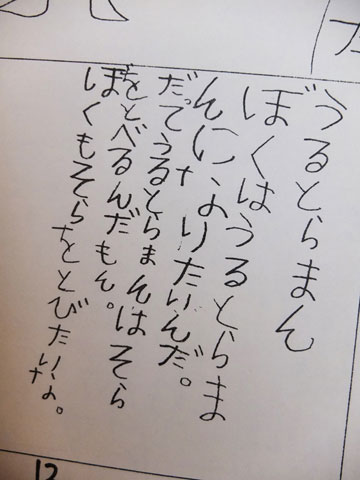 うるとらまん
ぼくはうるとらま
んになりたいんだ。
だってうるとらまんはそら
をとべるんだもん。
ぼくもそらをとびたいな。
12